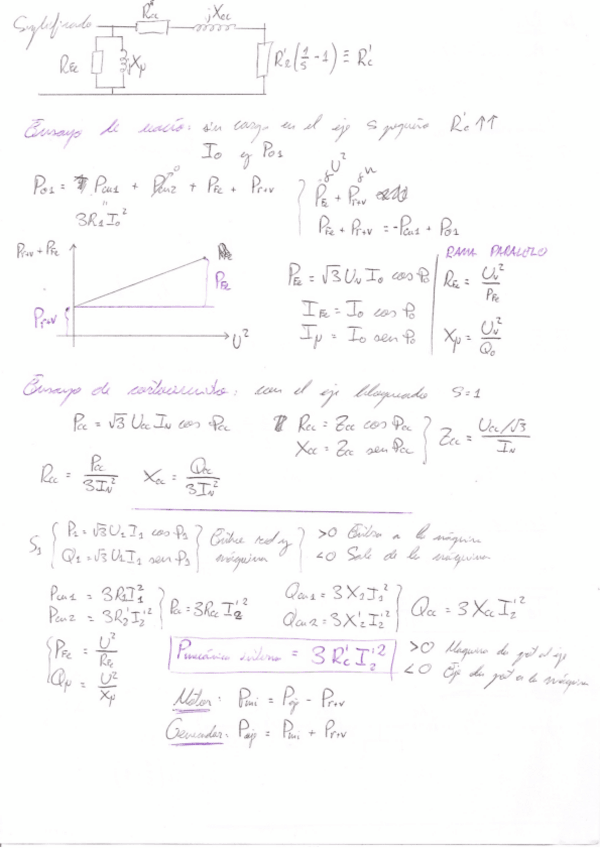 Simplificado
Rcc jXcc
RFe jXμ R'2(1/s - 1) ≡ R'c
Ensayo de vacío: sin carga en el eje s pequeño R'c ↑↑
I0 y P01
P01 = Pcu1 + Pcu2 + PFe + Pr+v
0
"
3R1I0²
f U² f n
PFe + Pr+v
PFe + Pr+v = -Pcu1 + P01
Pr+v + PFe
PFe
Pr+v
U²
PFe = √3 UN I0 cos φ0
IFe = I0 cos φ0
Iμ = I0 sen φ0
RAMA PARALELO
RFe = UN²/PFe
Xμ = UN²/Q0
Ensayo de cortocircuito: con el eje bloqueado s=1
Pcc = √3 Ucc IN cos φcc
Rcc = Zcc cos φcc
Xcc = Zcc sen φcc
Zcc = Ucc/√3 / IN
Rcc = Pcc/3IN² Xcc = Qcc/3IN²
S1
P1 = √3 U1 I1 cos φ1
Q1 = √3 U1 I1 sen φ1
Entre red y máquina
>0 Entra a la máquina
<0 Sale de la máquina
Pcu1 = 3R1I1²
Pcu2 = 3R'2I'2²
Pcc = 3Rcc I'2²
Qcu1 = 3X1I1²
Qcu2 = 3X'2I'2²
Qcc = 3Xcc I'2²
PFe = U²/RFe
Qμ = U²/Xμ
Pmecánica interna = 3R'c I'2²
>0 Maquina da pot al eje
<0 Eje da pot a la máquina
Motor: Pmi = Peje - Pr+v
Generador: Peje = Pmi + Pr+v